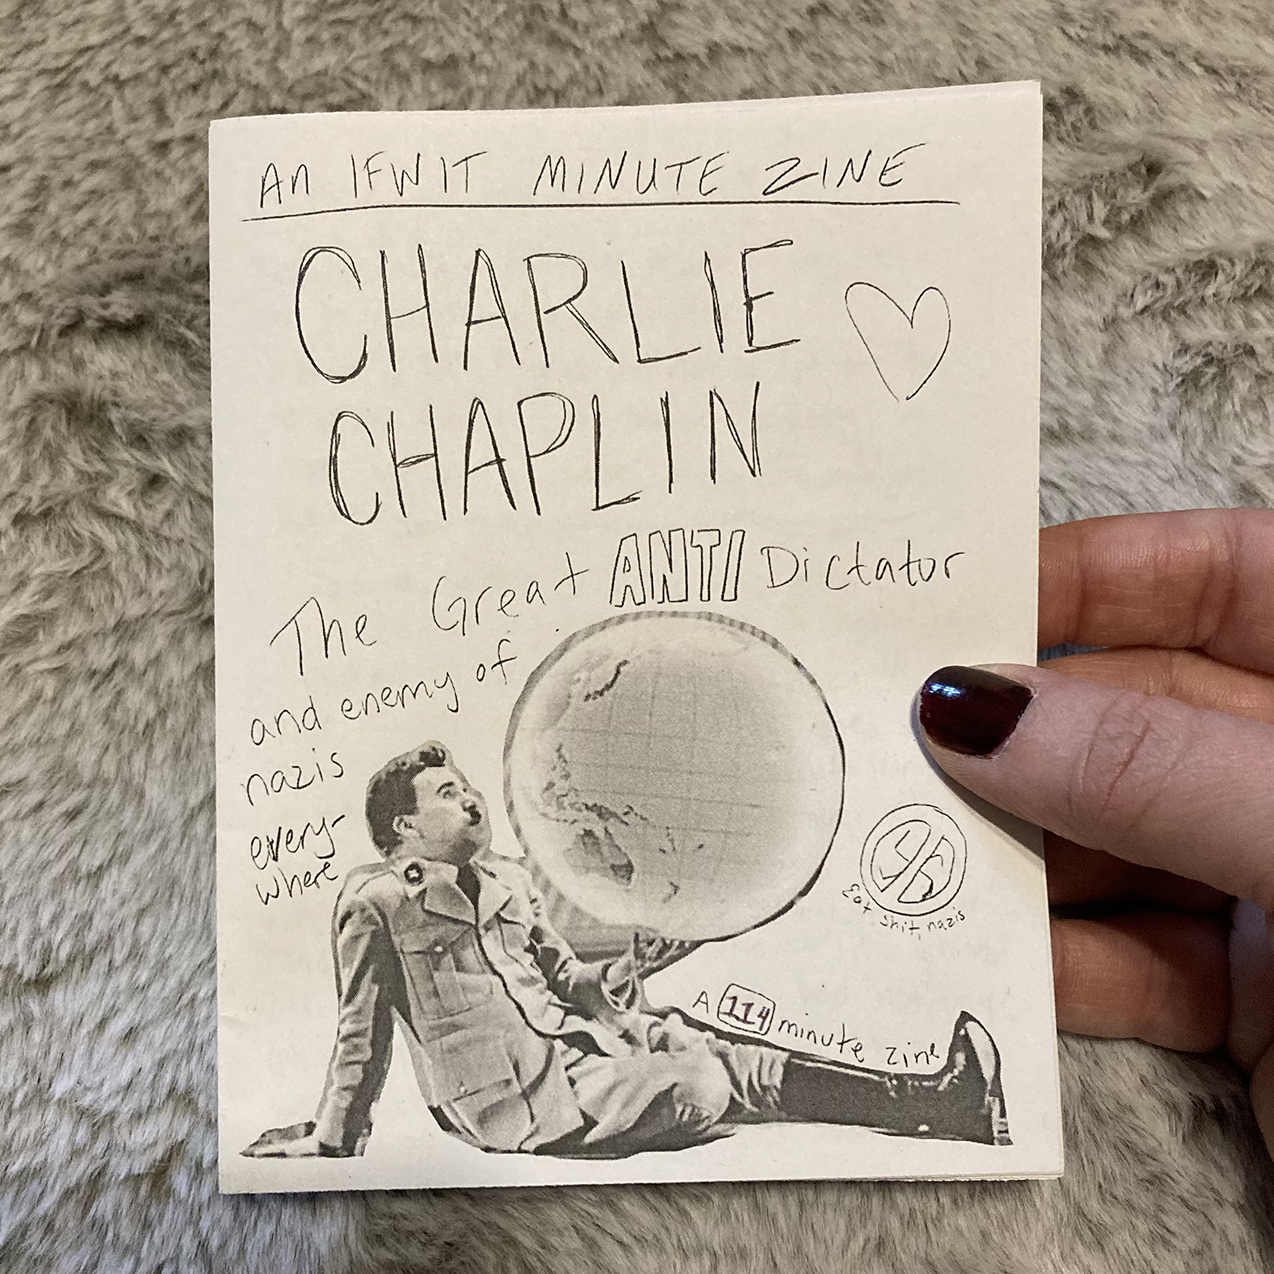 An IFWIT MINUTE ZINE
CHARLIE
CHAPLIN
The Great ANTI Dictator
and enemy of
nazis
every-
where
Eat shit, nazis
A 114 minute zine